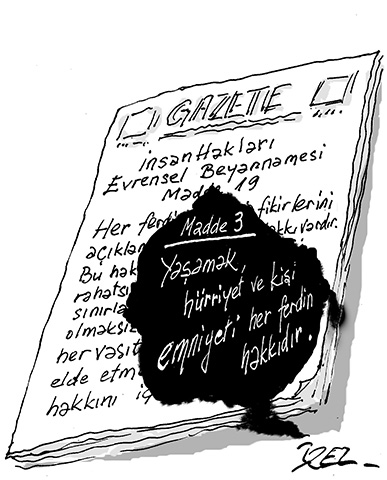 GAZETE
İnsan Hakları
Evrensel Beyannamesi
Madde 19
Her ferdin fikirlerini
açıklam hakkı vardır.
Bu hak
rahatsı
sınırla
olmaksız
her vasıt
elde etm
hakkını iç
Madde 3
Yaşamak,
hürriyet ve kişi
emniyeti her ferdin
hakkıdır.